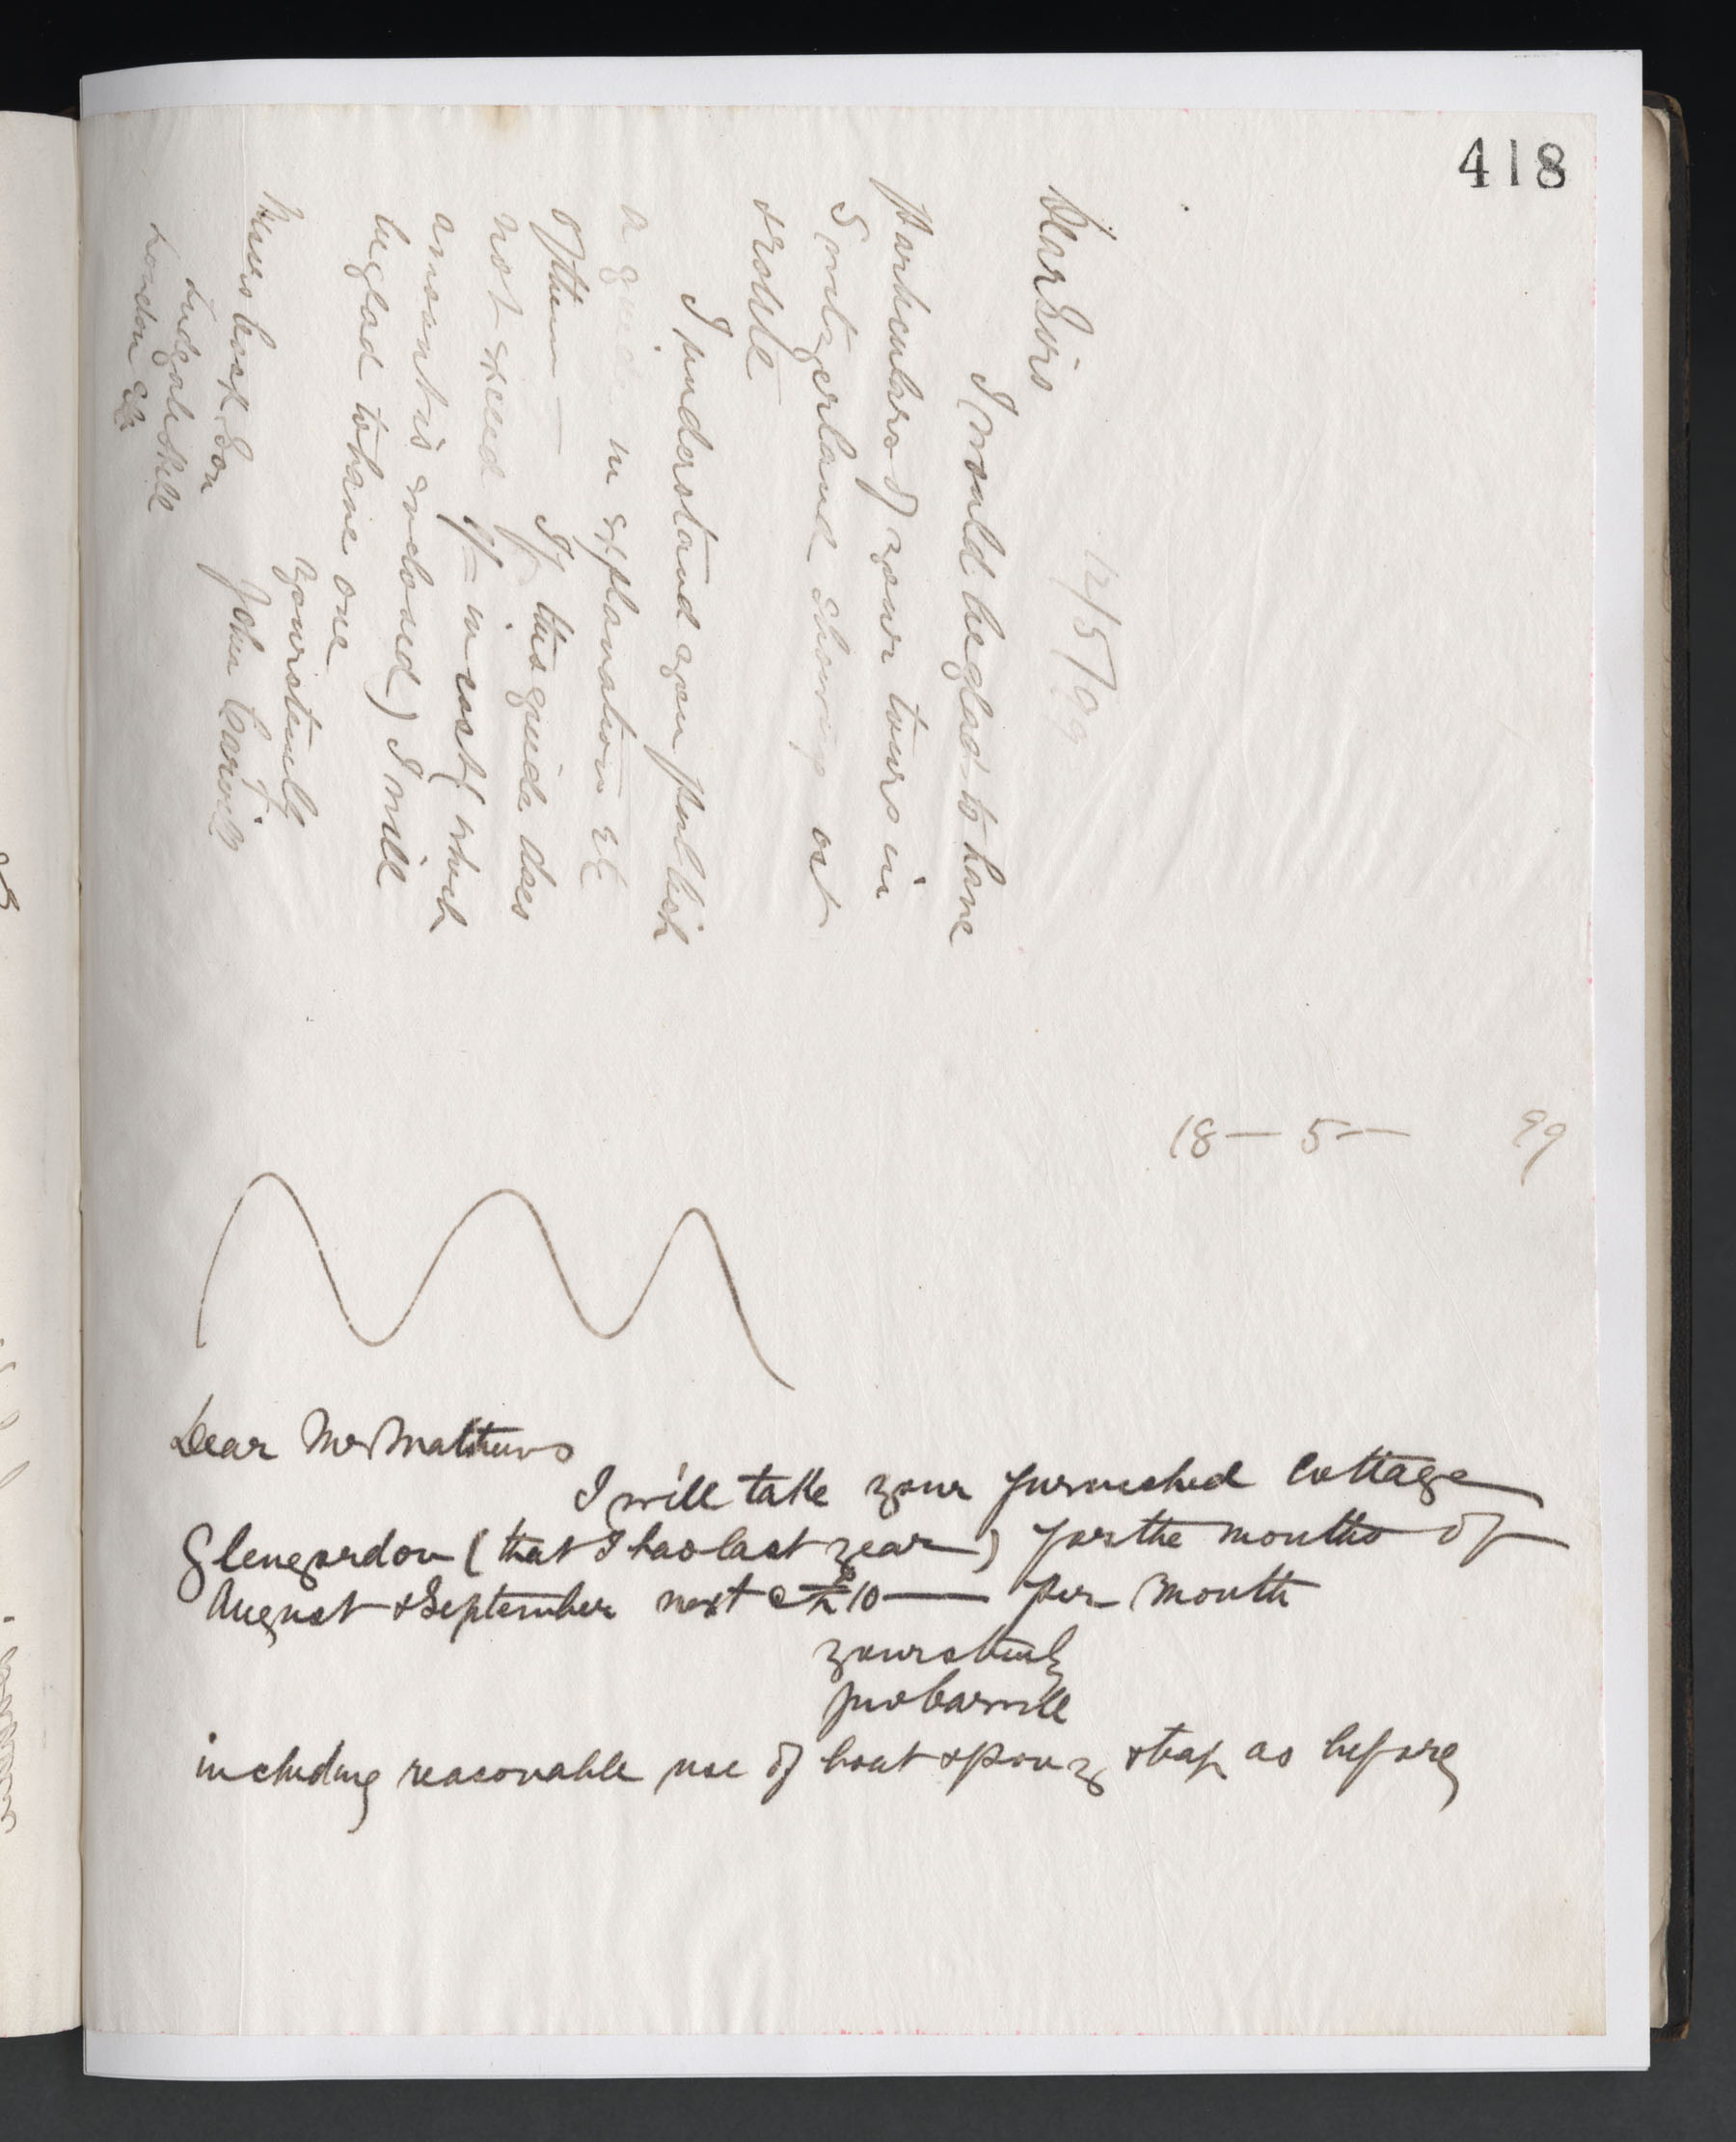 418
12/5/99
Dear Sirs
I would be glad to have
particulars of your tours in
Switzerland showing cost
& route
I understand you publish
a guide in explanation &c
of them — If this guide does
not exceed 1/- in cost (which
amount is enclosed) I will
be glad to have one
yours truly
John Carvill
Messrs Cook & Son
Ludgate Hill
London EC
18 — 5 — 99
Dear Mr Matthews
I will take your furnished cottage
Glengordon (that I had last year) for the months of
August & September next @ £10 — per month
yours truly
Jno Carvill
including reasonable use of boat & pony & trap as before